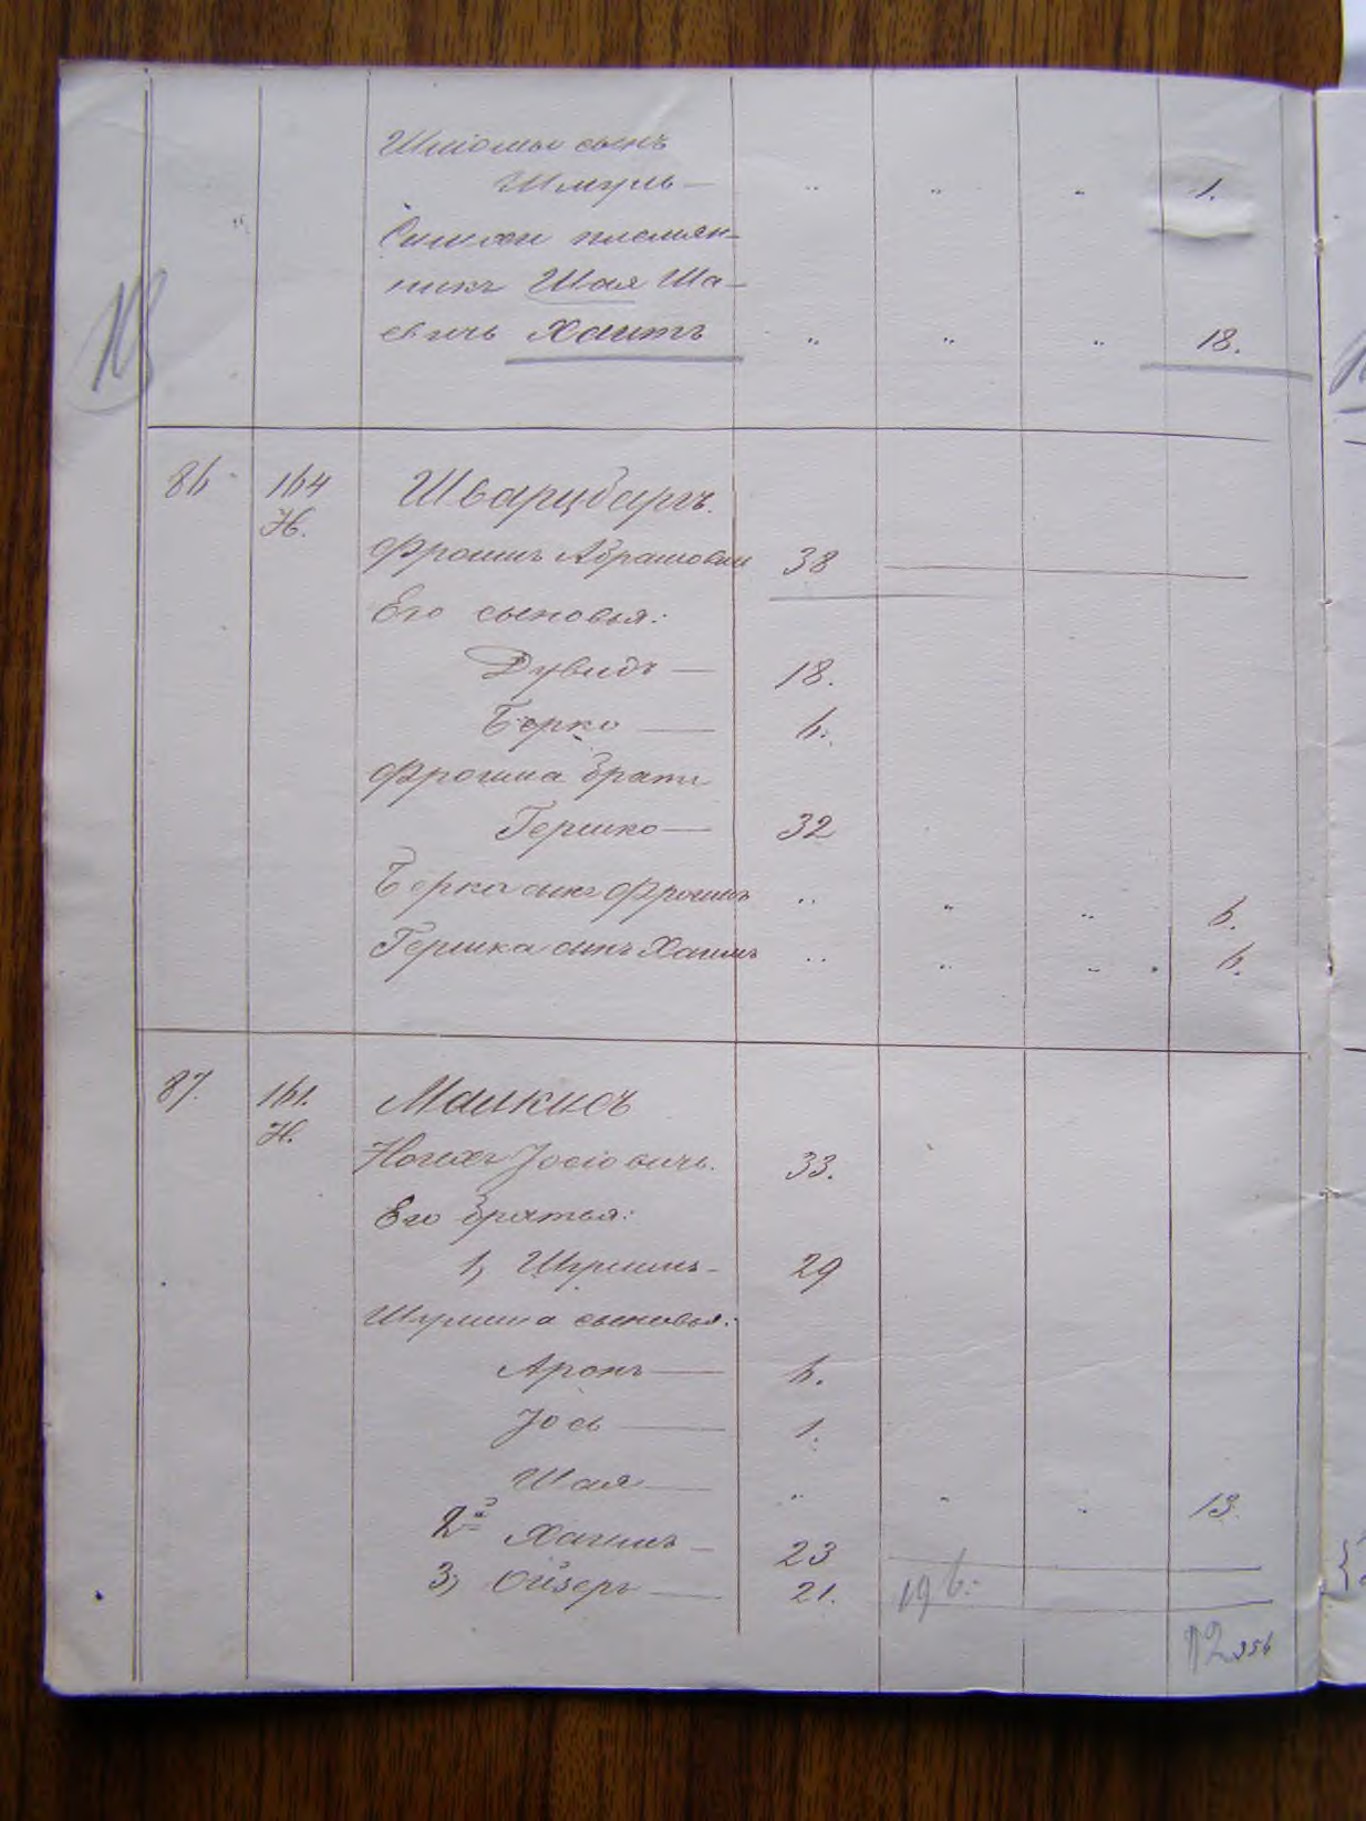 Шліомы сынъ
Шмуль — " " " 1.
"
Симхи племян-
никъ Шая Ша-
евичъ Хаитъ " " " 18.
86 164 Шварцбургъ.
Н.
Фроимъ Абрамовъ 38
Его сыновья:
Дувидъ — 18.
Берко — 6.
Фроима братъ
Гершко — 32
Берка сынъ Фроимъ " " " 6.
Гершка сынъ Хаимъ " " " 6.
87. 161. Малкисъ
Н.
Іосіовичъ. 33.
Его братья:
1, Шулимъ - 29
Шулима сыновья:
Аронъ — 6.
Іось — 1.
Шая — " " " 13.
2й Хаимъ - 23
3, Ойзеръ — 21.
196.
12